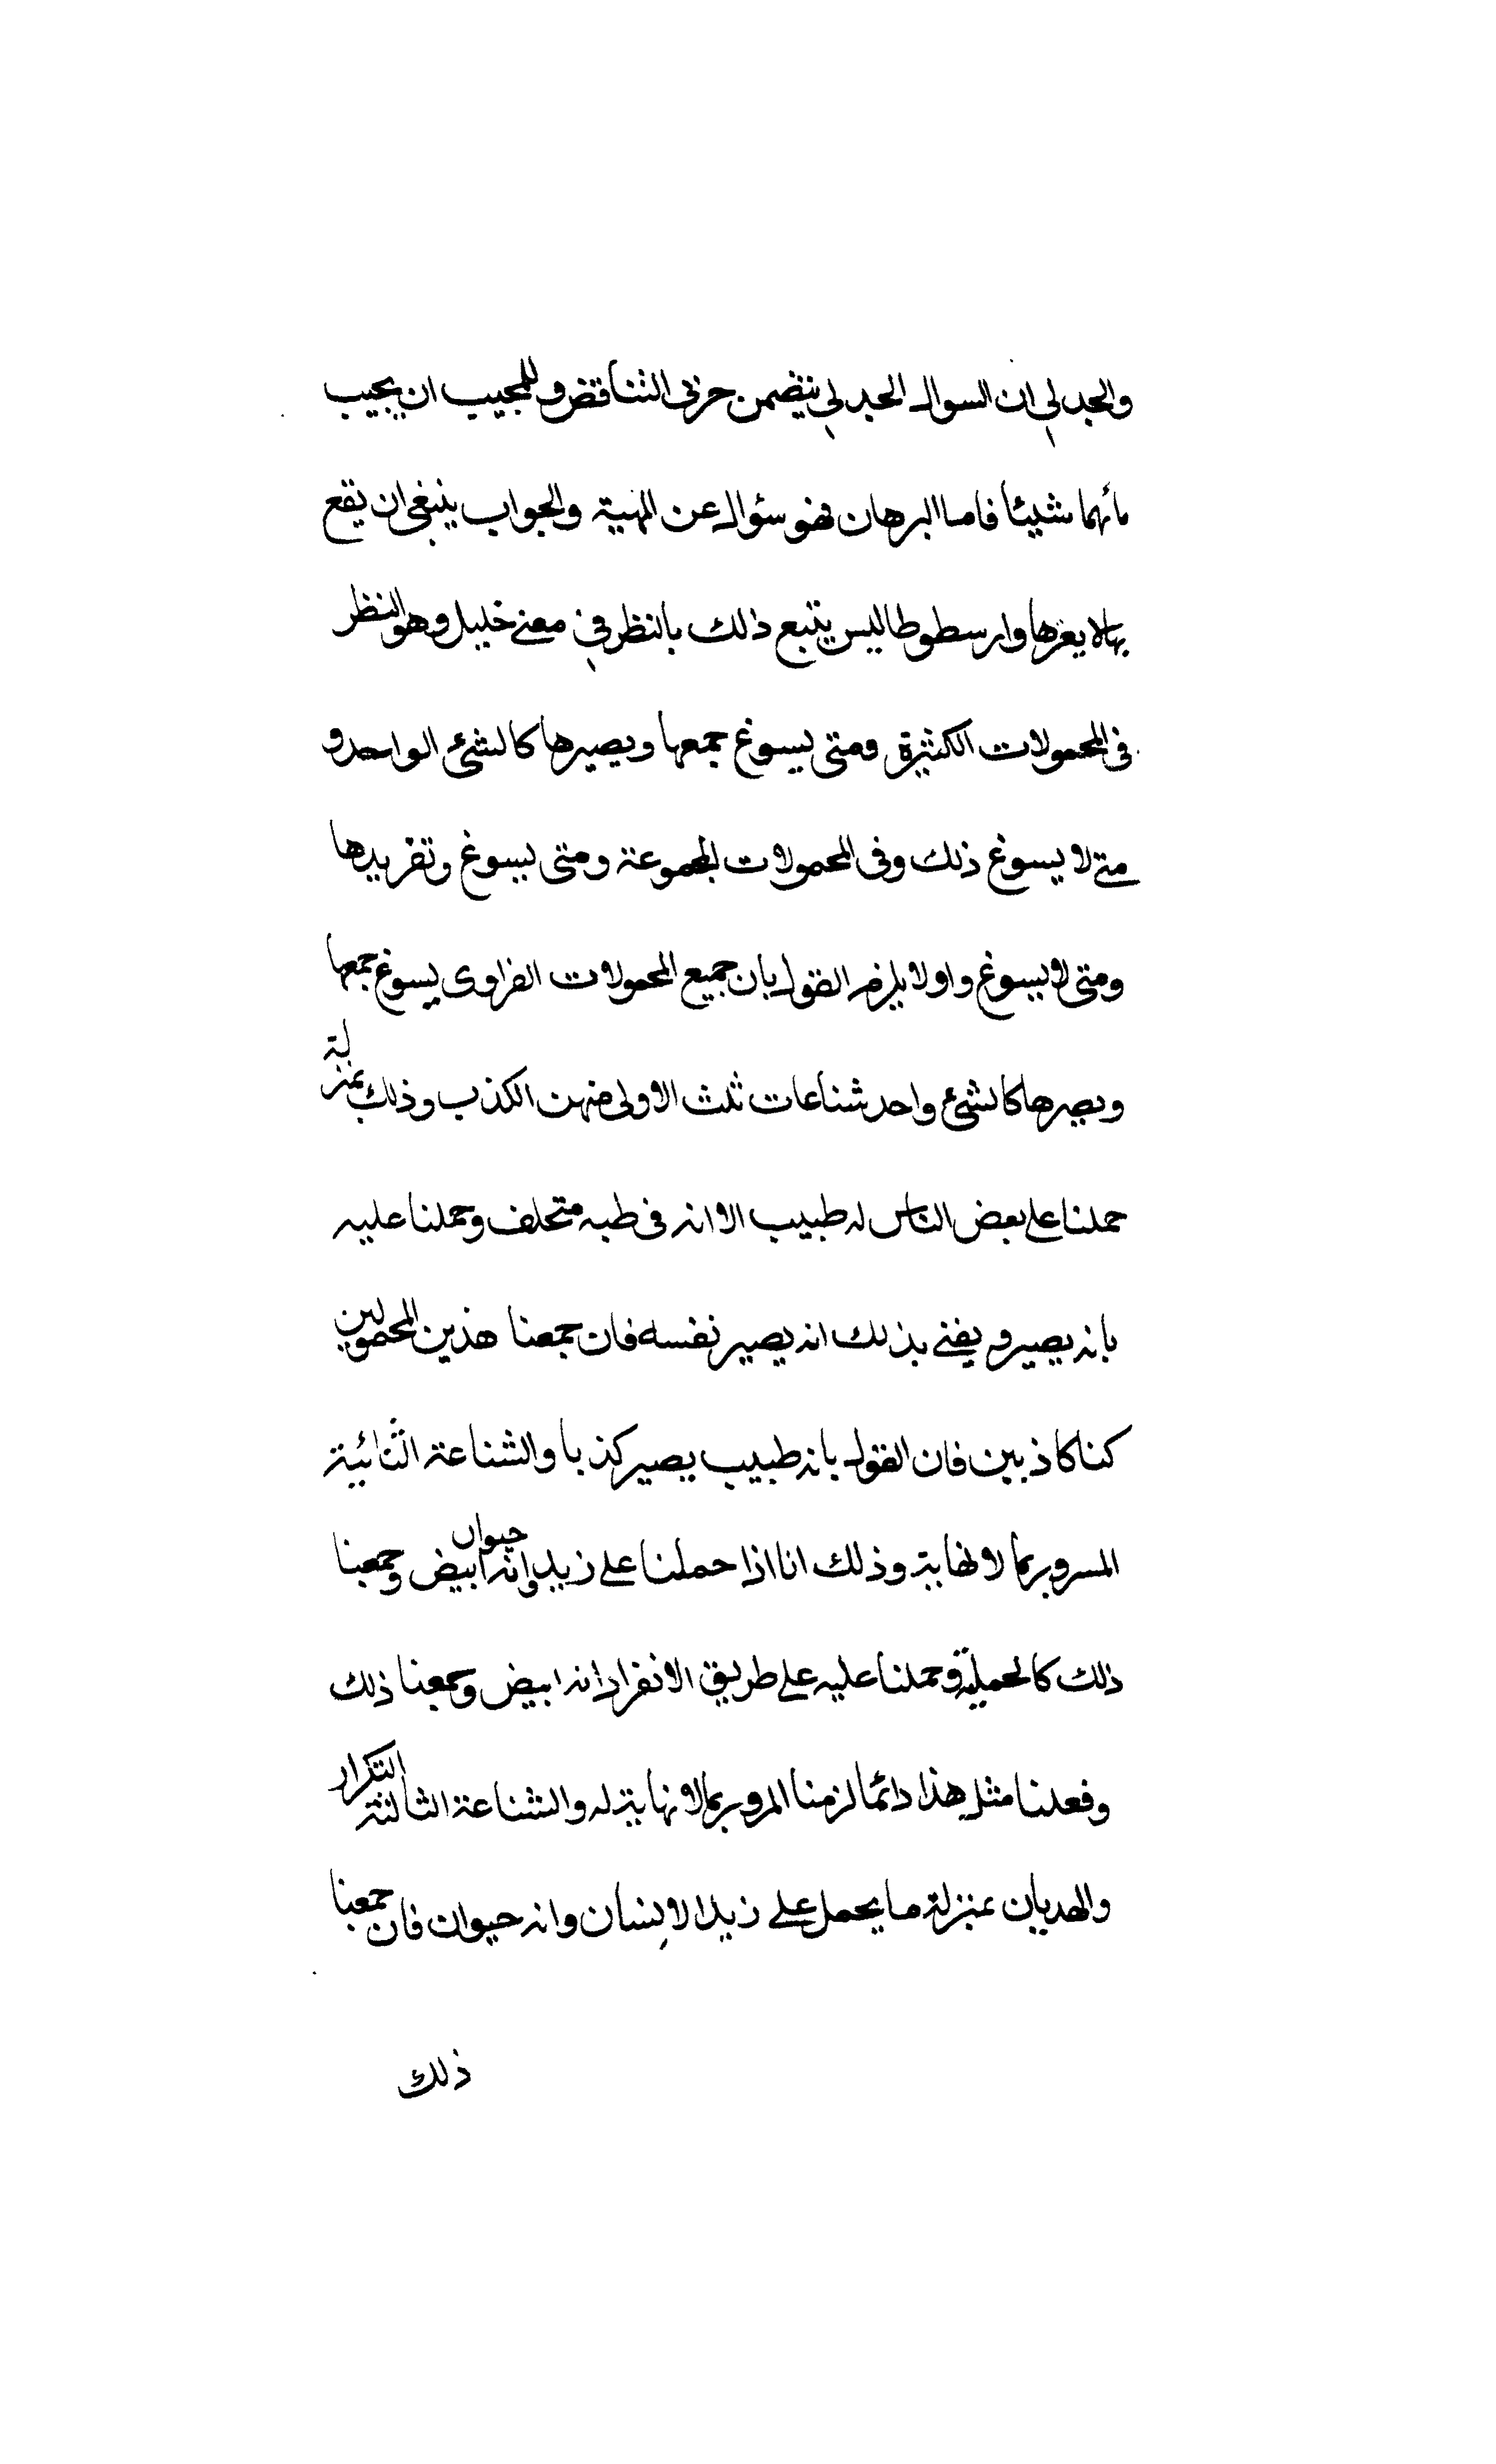 والجدلي ان السوال الجدلي يتضمن جزئى التناقض وللمجيب ان يجيب
بأيهما شيئا فاما البرهان فهو سؤال عن المهية والجواب ينبغى ان يقع
بها لا بغيرها وارسطوطاليس يتبع ذلك بالنظر في معنے خليل وهو النظر
فى المحمولات الكثيرة ومتى يسوغ جمعها ويصيرها كالشئ الواحد و
متے لا يسوغ ذلك وفى المحمولات المجموعة ومتى يسوغ وتفريدها
ومتى لا يسوغ واولا يلزم القول بان جميع المحمولات الفراوى يسوغ جمعها
ويصيرها كالشئ واحد شناعات ثلث الاولى منهن الكذب وذلك بمنزلة
حملنا علے بعض الناس له طبيب الا انه فى طبه متخلف وحملنا عليه
بانه بصير و يفنے بذلك انه بصير نفسه فان جمعنا هذين المحمولين
كنا كاذبين فان القول بانه طبيب بصير كذبا والشناعة الثانية
المسرور بما لا نهاية وذلك انا اذا حملنا علے زيد وانه حيوان ابيض وجمعنا
ذلك كالحملية وحملنا عليه علے طريق الانفراد انه ابيض وجمعنا ذلك
وفعلنا مثل هذا دائما لزمنا المرور بما لا نهاية له والشناعة الثالثة التكرار
والهديان بمنزلة ما يحمل علے زيد الانسان وانه حيوان فان جمعنا
ذلك